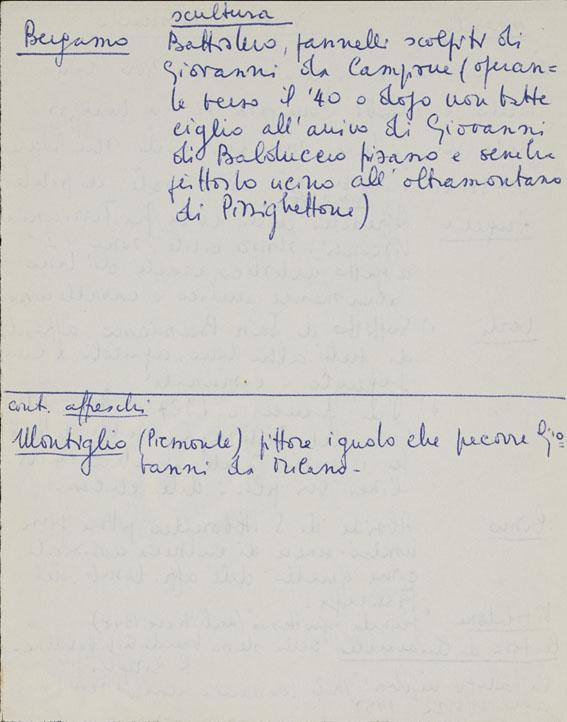 scultura
Bergamo Battistero, pannelli scolpiti di
Giovanni da Campione (operan-
te verso il '40 o dopo non batte
ciglio all'arrivo di Giovanni
di Balduccio pisano e sembra
piuttosto vicino all'oltramontano
di Pizzighettone)
cont. affreschi
Montiglio (Piemonte) pittore ignoto che precorre Gio
vanni da Milano -